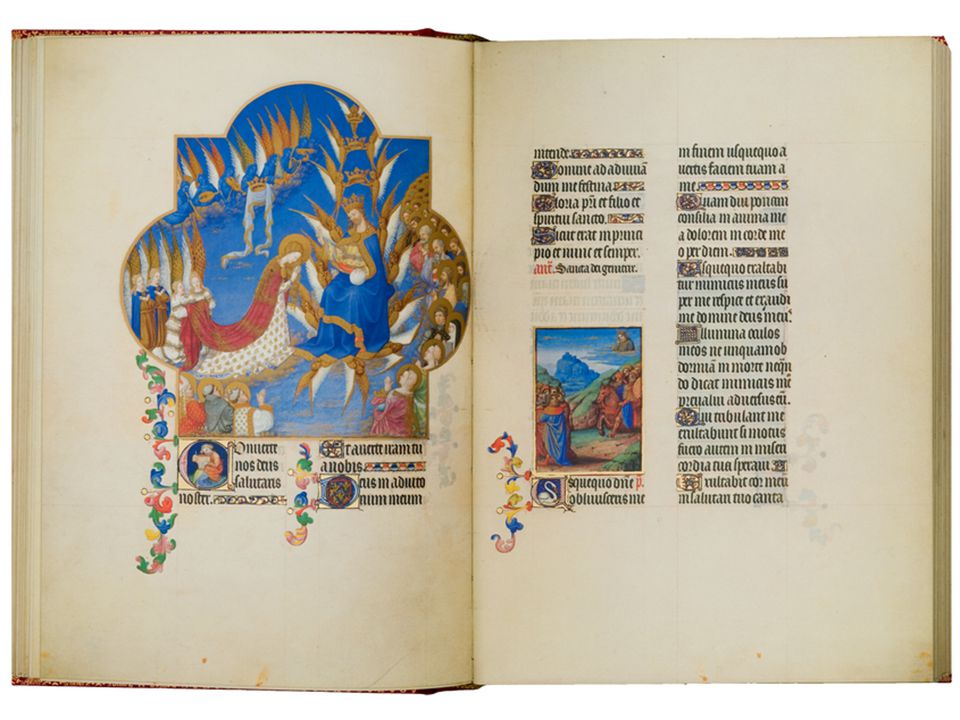 Conuerte
nos deus
salutaris
noster
Et auerte iram tu
a nobis.
Deus in adiuto
rium meum
intende.
Domine ad adiuuā
dum me festina.
Gloria pr̄i et filio et
spiritui sancto.
Sicut erat in princi
pio et nunc et semper.
Sancta dei genitrix.
Usquequo dn̄e
obliuisceris me
in finem usquequo a
uertis faciem tuam a
me.
Quam diu ponam
consilia in anima me
a dolorem in corde me
o per diem.
Usquequo exaltabi
tur inimicus meus su
per me respice et exaudi
me domine deus meus
Illumina oculos
meos ne unquam ob
dormiā in morte neqn̄
do dicat inimicus me
preualui aduersus eū.
Qui tribulant me
exultabunt si motus
fuero autem in miseri
cordia tua speraui
Exultabit cor meū
in salutari tuo canta